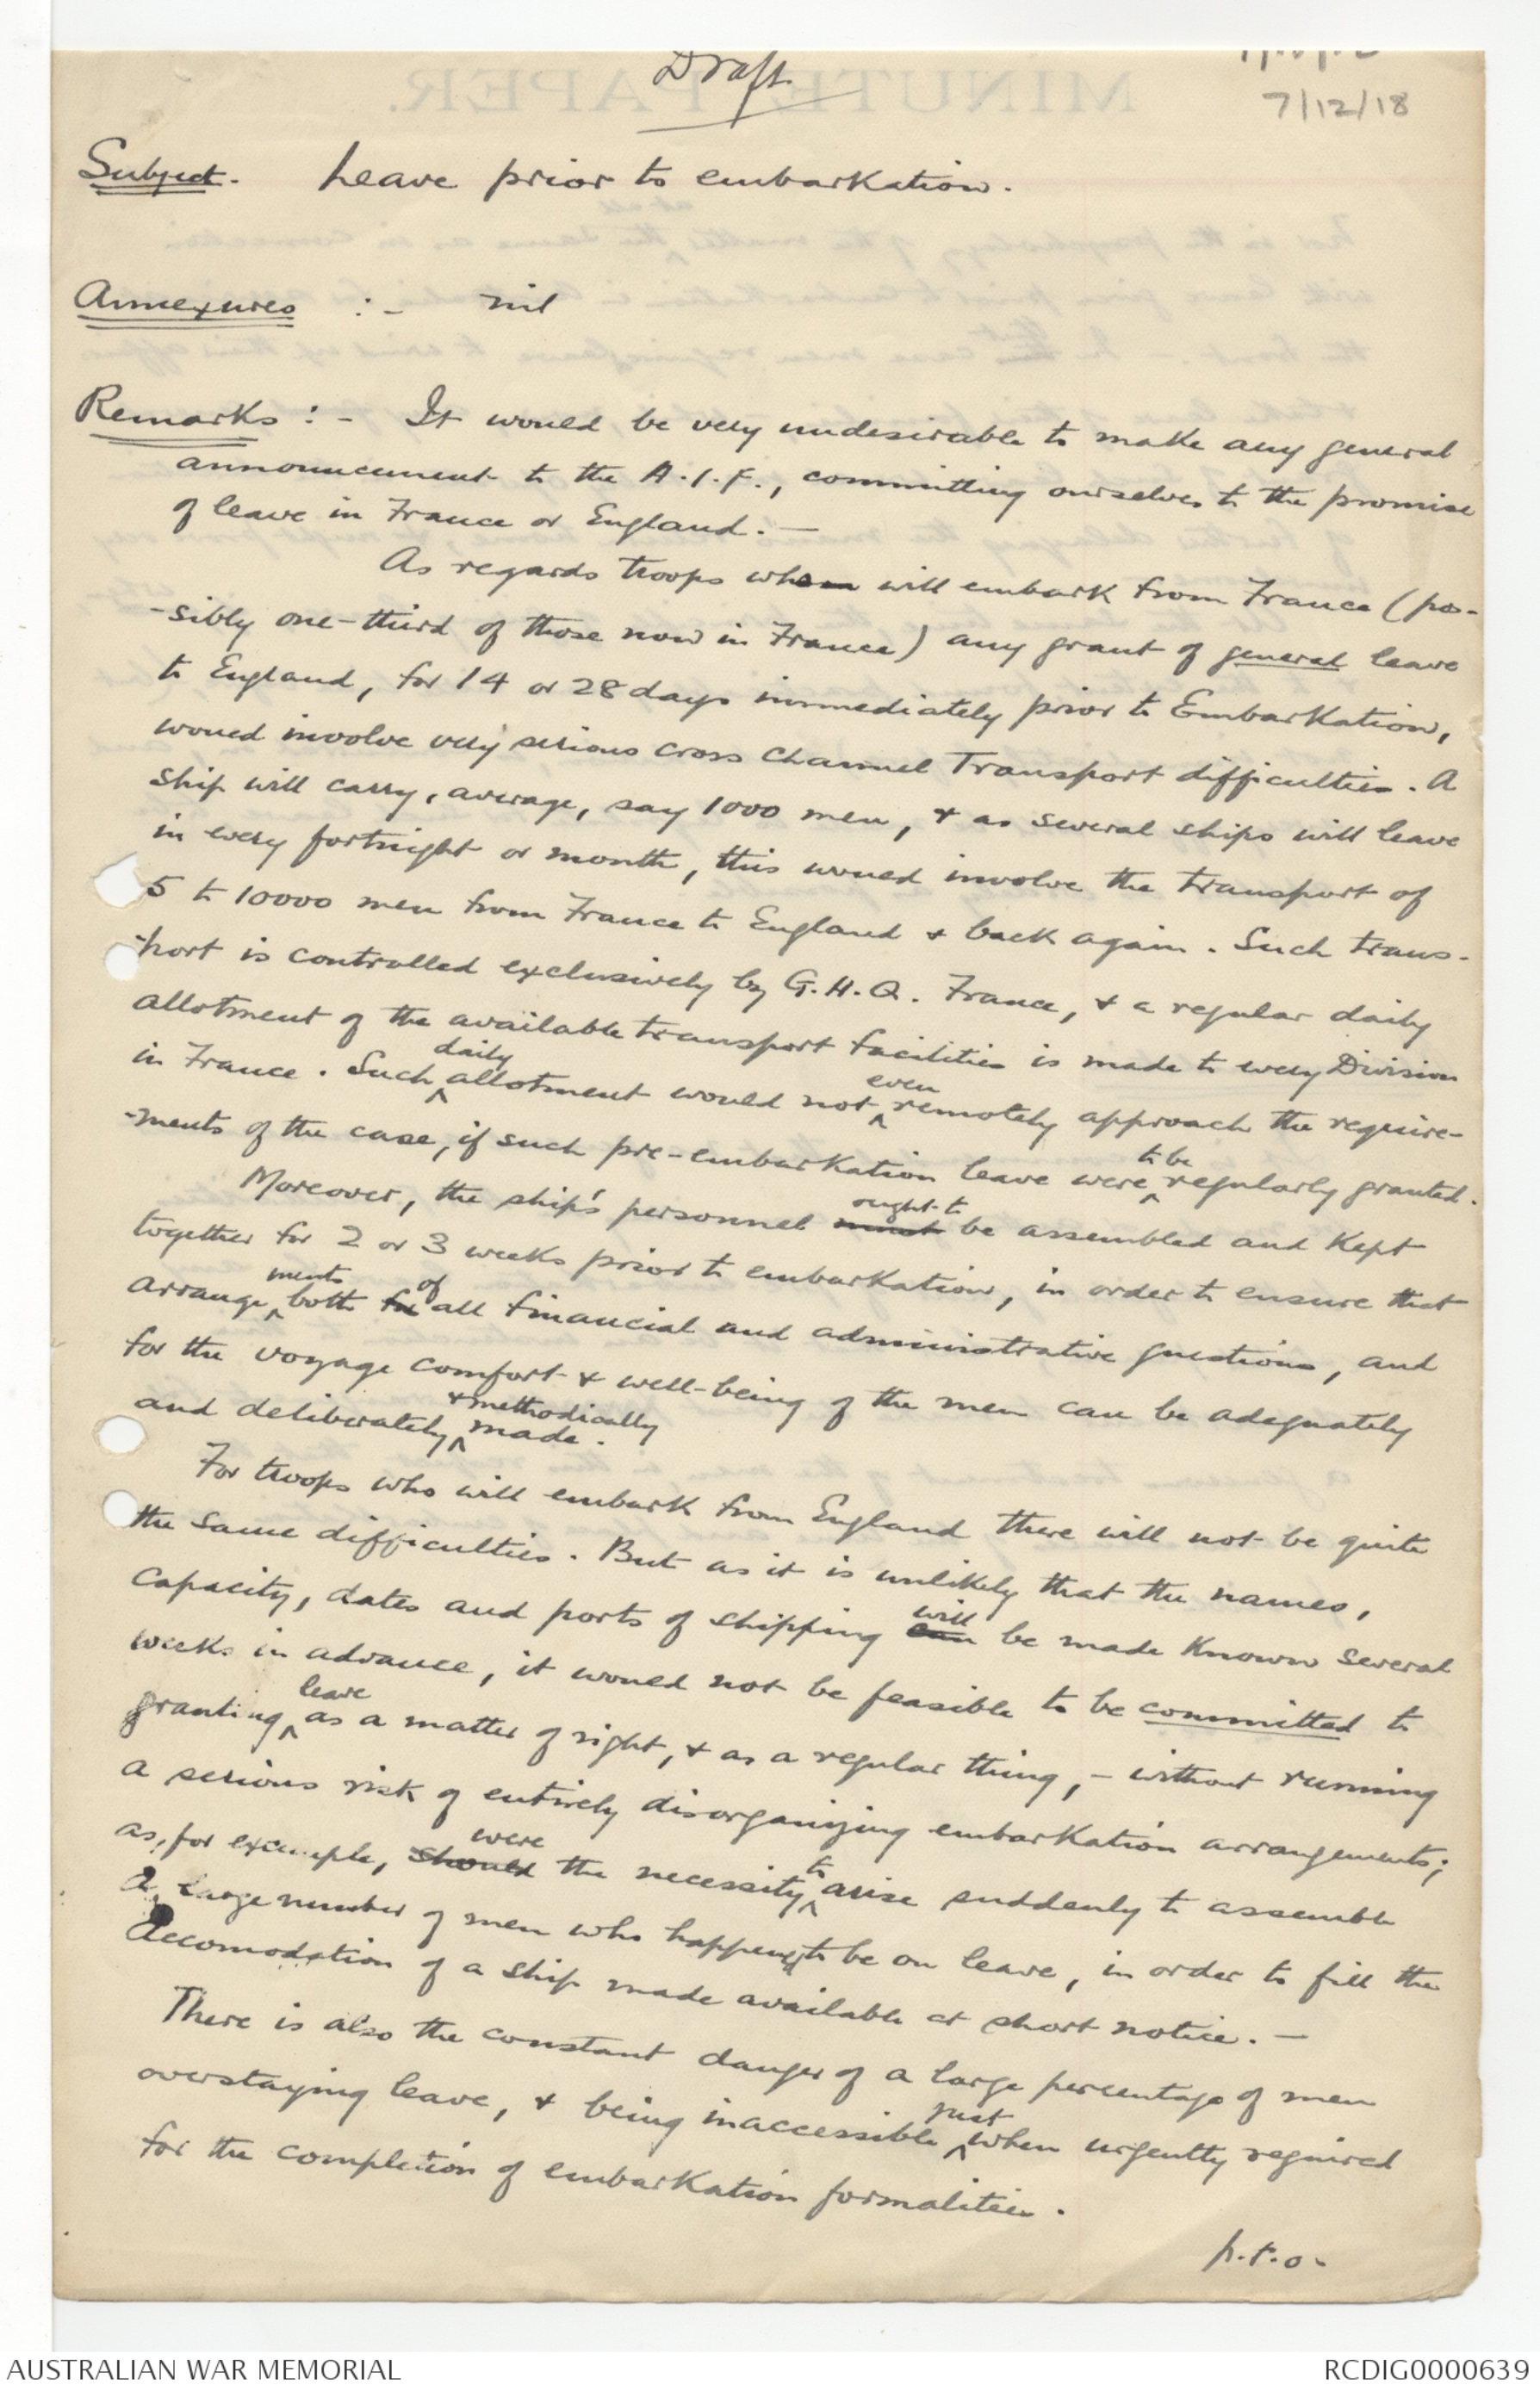 Draft
7/12/18
Subject. Leave prior to embarkation.
Annexures :- nil
Remarks :- It would be very undesirable to make any general
announcement to the A.I.F., committing ourselves to the promise
of leave in France or England. —
As regards troops who will embark from France (pos-
-sibly one-third of those now in France) any grant of general leave
to England, for 14 or 28 days immediately prior to Embarkation,
would involve very serious cross Channel Transport difficulties. A
ship will carry, average, say 1000 men, & as several ships will leave
in every fortnight or month, this would involve the transport of
5 to 10000 men from France to England & back again. Such trans-
-port is controlled exclusively by G.H.Q. France, & a regular daily
allotment of the available transport facilities is made to every Division
in France. Such daily allotment would not even remotely approach the require-
-ments of the case, if such pre-embarkation leave were to be regularly granted.
Moreover, the ship's personnel must ought to be assembled and kept
together for 2 or 3 weeks prior to embarkation, in order to ensure that
arrangements both for of all financial and administrative questions, and
for the voyage comfort & well-being of the men can be adequately
and deliberately & methodically made.
For troops who will embark from England there will not be quite
the same difficulties. But as it is unlikely that the names,
capacity, dates and ports of shipping can will be made known several
weeks in advance, it would not be feasible to be committed to
granting leave as a matter of right, & as a regular thing, - without running
a serious risk of entirely disorganizing embarkation arrangements;
as, for example, should were the necessity to arise suddenly to assemble
a large number of men who happen to be on leave, in order to fill the
accomodation of a ship made available at short notice. —
There is also the constant danger of a large percentage of men
overstaying leave, & being inaccessible just when urgently required
for the completion of embarkation formalities.
p.t.o.
AUSTRALIAN WAR MEMORIAL
RCDIG0000639